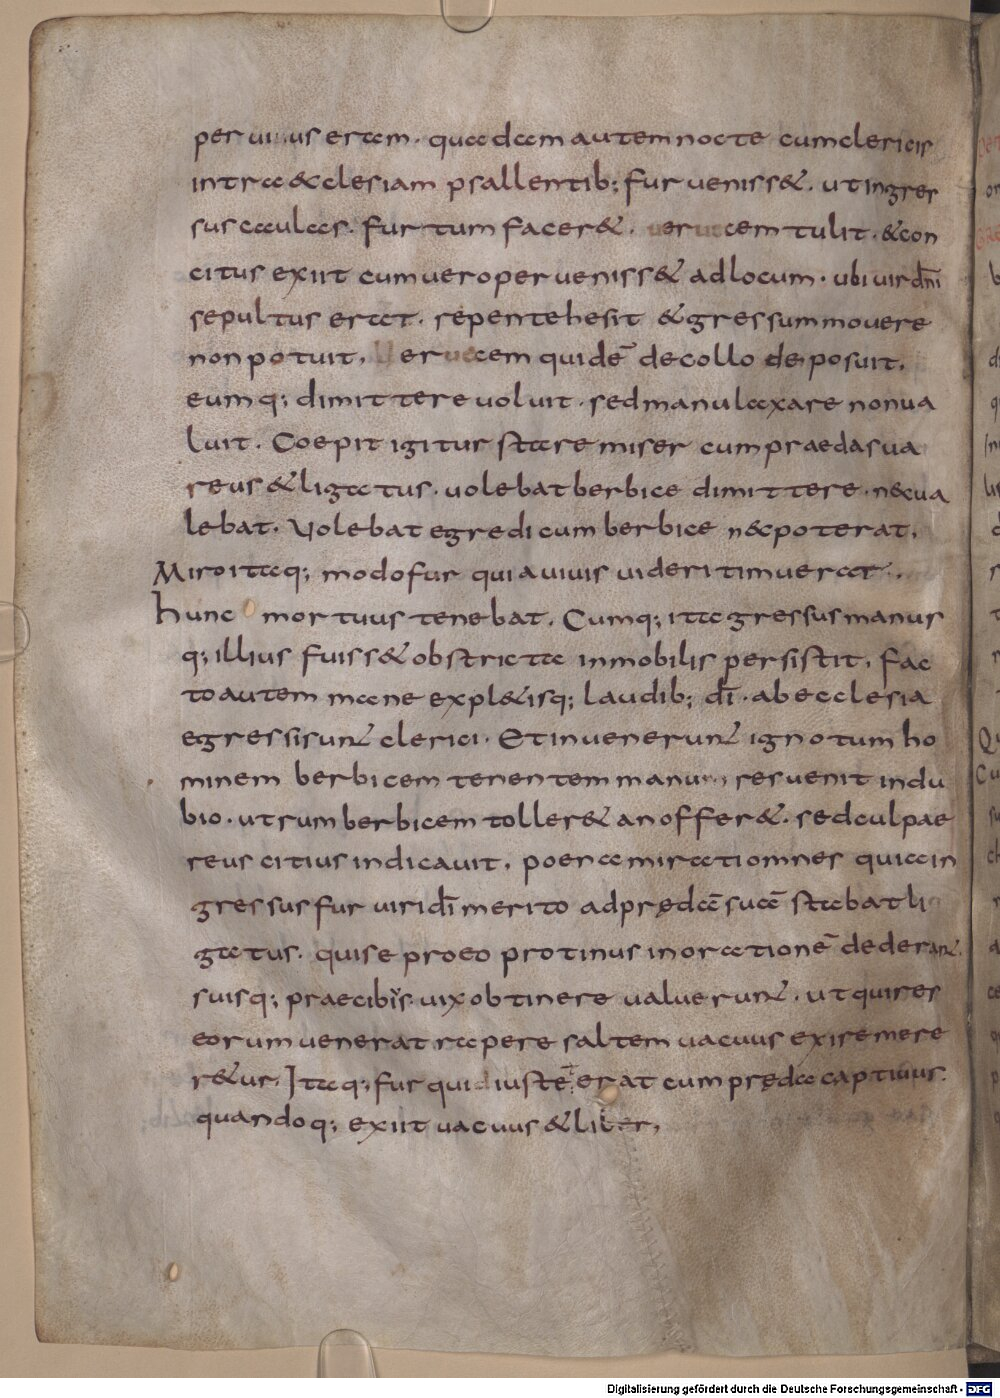 peruiuus erat. quadam autem nocte cum clericis
intra &clesiam psallentib; fur uenis&. ut ingres
sus caulas. furtum facer&. ueruecem tulit. & con
citus exiit cum uero peruenis& ad locum. ubi uir dn̄i
sepultus erat. repente hesit & gressum mouere
non potuit. Ueruecem quidē de collo deposuit.
eumq; dimittere uoluit. sed manu laxare non ua
luit. Coepit igitur stare miser cum praeda sua
reus & ligatus. uolebat berbice dimittere. n&ua
lebat. Uolebat egredi cum berbice n&poterat.
Miro itaq; modo fur quia uiuis uideri timuerat.
hunc mortuus tenebat. Cumq; ita gressus manus
q; illius fuiss& obstricta inmobilis persistit. Fac
to autem mane expl&isq; laudib; dī. ab ecclesia
egressi sunt clerici. Et inuenerunt ignotum ho
minem berbicem tenentem manu res uenit in du
bio. utrum berbicem toller& an offer&. sed culpae
reus citius indicauit. poena mirati omnes quia in
gressus fur uiri dī merito ad prędā suā stabat li
gatus. qui se pro eo protinus in orationē dederant.
suisq; praecibus uix obtinere ualuerunt. ut qui res
eorum uenerat rapere saltem uacuus exire mere
r&ur. Itaq; fur qui diu steterat cum pręda captiuus.
quandoq; exiit uacuus & liber.
Digitalisierung gefördert durch die Deutsche Forschungsgemeinschaft - DFG